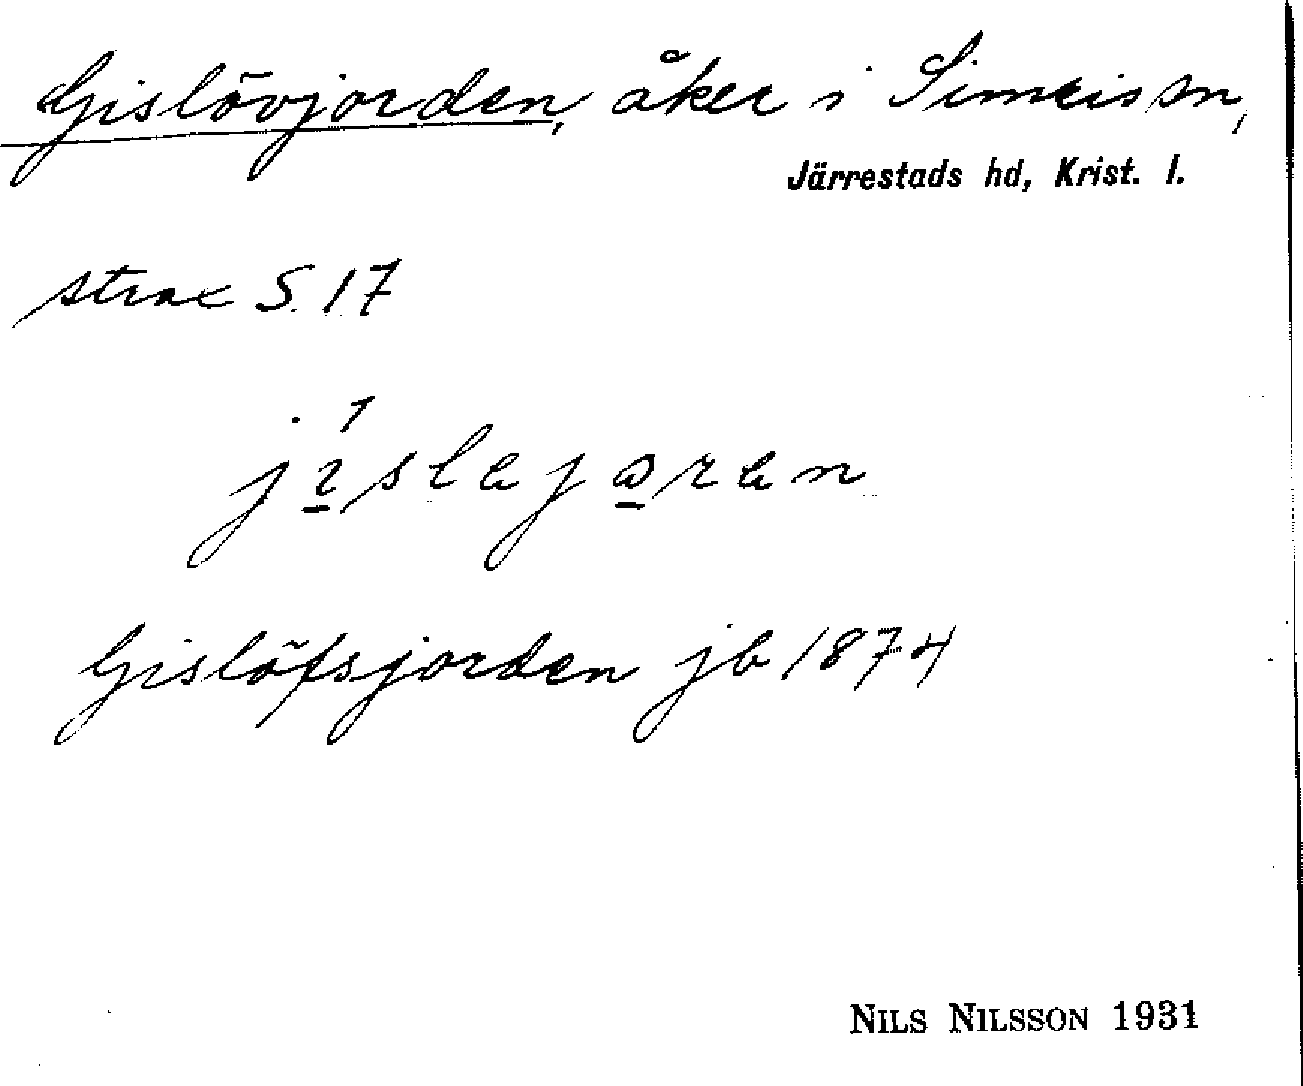 Gislövjorden, åker i Simris sn,
Järrestads hd, Krist. l.
strax S. 17
Gislöfsjorden jb 1874
NILS NILSSON 1931